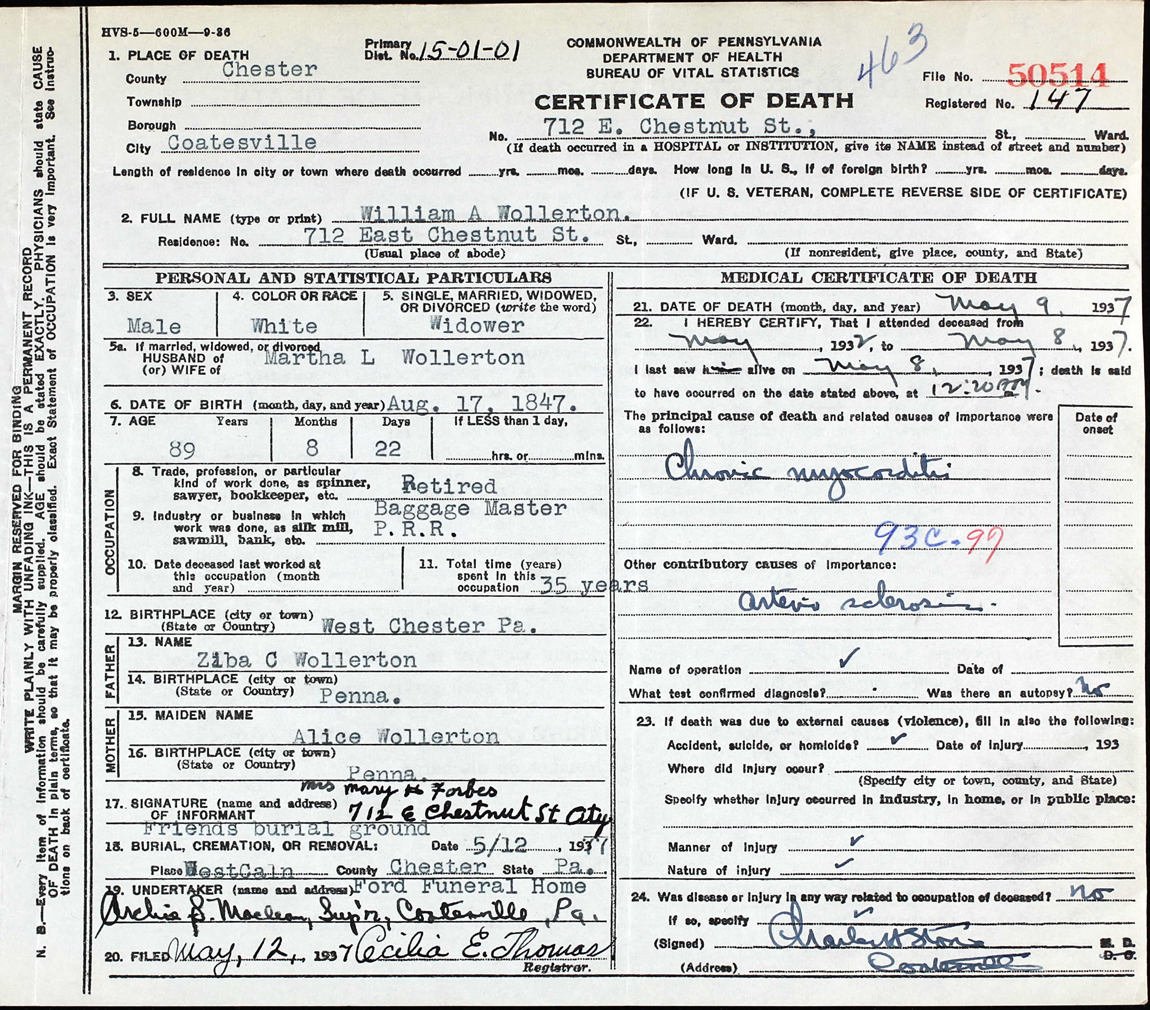 HVS-5—600M—9-36
1. PLACE OF DEATH
County Chester
Township
Borough
City Coatesville
Primary Dist. No. 15-01-01
COMMONWEALTH OF PENNSYLVANIA
DEPARTMENT OF HEALTH
BUREAU OF VITAL STATISTICS
463
CERTIFICATE OF DEATH
File No. 50514
Registered No. 147
No. 712 E. Chestnut St., St., Ward.
(If death occurred in a HOSPITAL or INSTITUTION, give its NAME instead of street and number)
Length of residence in city or town where death occurred yrs. mos. days. How long in U. S., if of foreign birth? yrs. mos. days.
(IF U. S. VETERAN, COMPLETE REVERSE SIDE OF CERTIFICATE)
2. FULL NAME (type or print) William A Wollerton.
Residence: No. 712 East Chestnut St. St., Ward.
(Usual place of abode) (If nonresident, give place, county, and State)
PERSONAL AND STATISTICAL PARTICULARS
3. SEX Male
4. COLOR OR RACE White
5. SINGLE, MARRIED, WIDOWED, OR DIVORCED (write the word) Widower
5a. If married, widowed, or divorced
HUSBAND of Martha L Wollerton
(or) WIFE of
6. DATE OF BIRTH (month, day, and year) Aug. 17, 1847.
7. AGE Years Months Days If LESS than 1 day,
89 8 22 hrs. or mins.
OCCUPATION
8. Trade, profession, or particular
kind of work done, as spinner,
sawyer, bookkeeper, etc. Retired
Baggage Master
9. Industry or business in which
work was done, as silk mill, P.R.R.
sawmill, bank, etc.
10. Date deceased last worked at
this occupation (month
and year)
11. Total time (years)
spent in this
occupation 35 years
12. BIRTHPLACE (city or town)
(State or Country) West Chester Pa.
FATHER
13. NAME
Ziba C Wollerton
14. BIRTHPLACE (city or town)
(State or Country) Penna.
MOTHER
15. MAIDEN NAME
Alice Wollerton
16. BIRTHPLACE (city or town)
(State or Country) Penna.
Mrs Mary H Forbes
17. SIGNATURE (name and address)
OF INFORMANT 712 E Chestnut St City
Friends burial ground
18. BURIAL, CREMATION, OR REMOVAL: Date 5/12, 1937
Place WestCaln County Chester State Pa.
19. UNDERTAKER (name and address) Ford Funeral Home
Archie S. Maclean, Sup'r, Coatesville, Pa.
20. FILED May, 12, 1937 Cecilia E. Thomas
Registrar.
MEDICAL CERTIFICATE OF DEATH
21. DATE OF DEATH (month, day, and year) May 9, 1937
22. I HEREBY CERTIFY, That I attended deceased from
May, 1932, to May 8, 1937.
I last saw him alive on May 8, 1937; death is said
to have occurred on the date stated above, at 12:20 AM.
The principal cause of death and related causes of importance were
as follows:
Date of
onset
Chronic myocarditis
93C-97
Other contributory causes of importance:
Arterio sclerosis.
Name of operation ✓ Date of
What test confirmed diagnosis? Was there an autopsy? No
23. If death was due to external causes (violence), fill in also the following:
Accident, suicide, or homicide? ✓ Date of injury , 193
Where did injury occur?
(Specify city or town, county, and State)
Specify whether injury occurred in industry, in home, or in public place:
Manner of injury ✓
Nature of injury ✓
24. Was disease or injury in any way related to occupation of deceased? No
If so, specify ✓
(Signed) Charles H Stone M. D.
D. O.
(Address) Coatesville
MARGIN RESERVED FOR BINDING
WRITE PLAINLY WITH UNFADING INK—THIS IS A PERMANENT RECORD
N. B.—Every item of information should be carefully supplied. AGE should be stated EXACTLY. PHYSICIANS should state CAUSE
OF DEATH in plain terms, so that it may be properly classified. Exact Statement of OCCUPATION is very important. See instruc-
tions on back of certificate.